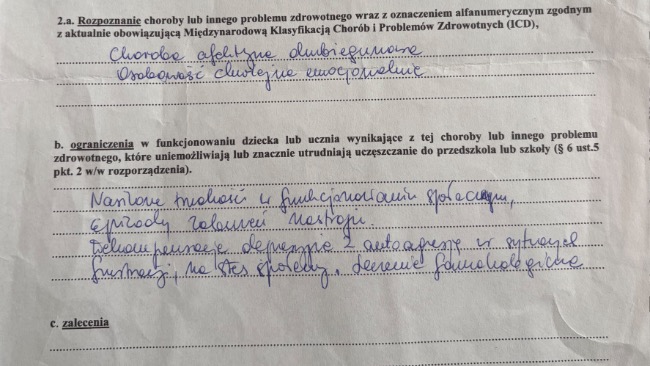 2.a. Rozpoznanie choroby lub innego problemu zdrowotnego wraz z oznaczeniem alfanumerycznym zgodnym
z aktualnie obowiązującą Międzynarodową Klasyfikacją Chorób i Problemów Zdrowotnych (ICD),
Choroba afektywna dwubiegunowa
Osobowość chwiejna emocjonalnie
b. ograniczenia w funkcjonowaniu dziecka lub ucznia wynikające z tej choroby lub innego problemu
zdrowotnego, które uniemożliwiają lub znacznie utrudniają uczęszczanie do przedszkola lub szkoły (§ 6 ust.5
pkt. 2 w/w rozporządzenia).
trudności w funkcjonowaniu społecznym,
epizody zaburzeń nastroju
Dekompensacje depresyjne z autoagresją w sytuacji
frustracji, na stres społeczny, leczenie farmakologiczne
c. zalecenia